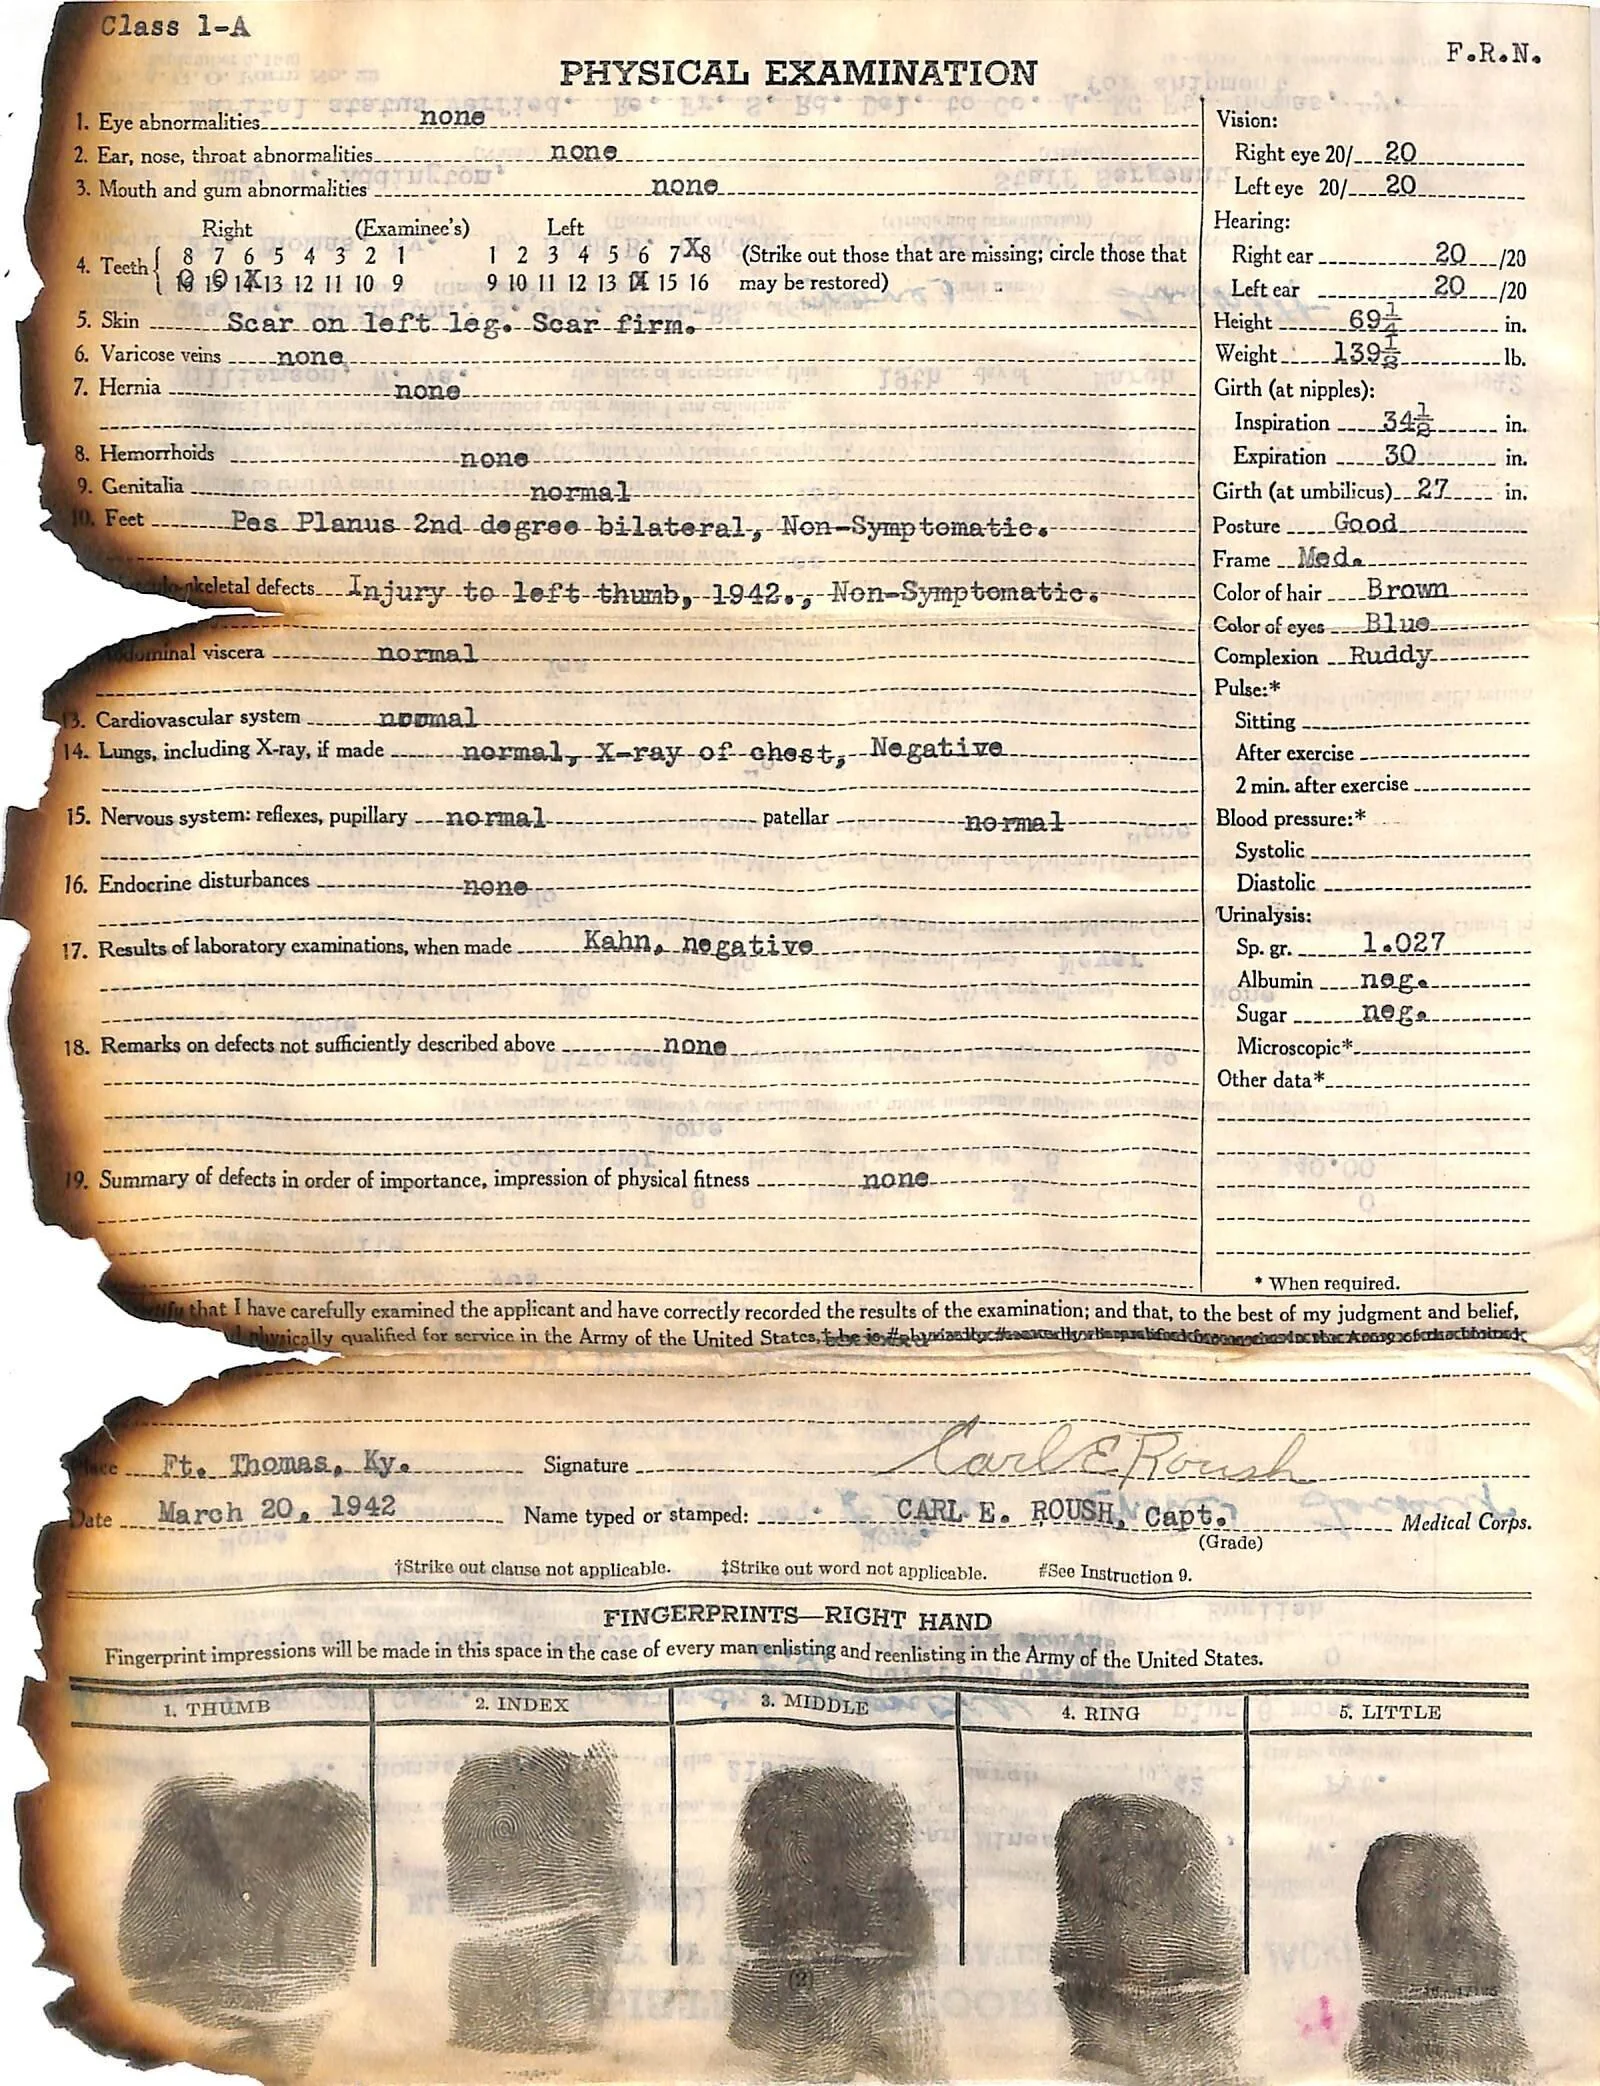 Class 1-A
F.R.N.
PHYSICAL EXAMINATION
1. Eye abnormalities none
2. Ear, nose, throat abnormalities none
3. Mouth and gum abnormalities none
Right (Examinee's) Left
8 7 6 5 4 3 2 1 1 2 3 4 5 6 7 X8 (Strike out those that are missing; circle those that
4. Teeth
13 12 11 10 9 9 10 11 12 13 15 16 may be restored)
5. Skin Scar on left leg. Scar firm.
6. Varicose veins none
7. Hernia none
8. Hemorrhoids none
9. Genitalia normal
10. Feet Pes Planus 2nd degree bilateral, Non-Symptomatic.
skeletal defects Injury to left thumb, 1942., Non-Symptomatic.
dominal viscera normal
13. Cardiovascular system normal
14. Lungs, including X-ray, if made normal, X-ray of chest, Negative
15. Nervous system: reflexes, pupillary normal patellar normal
16. Endocrine disturbances none
17. Results of laboratory examinations, when made Kahn, negative
18. Remarks on defects not sufficiently described above none
19. Summary of defects in order of importance, impression of physical fitness none
Vision:
Right eye 20/ 20
Left eye 20/ 20
Hearing:
Right ear 20 /20
Left ear 20 /20
Height 69¼ in.
Weight 139½ lb.
Girth (at nipples):
Inspiration 34½ in.
Expiration 30 in.
Girth (at umbilicus) 27 in.
Posture Good
Frame Med.
Color of hair Brown
Color of eyes Blue
Complexion Ruddy
Pulse:*
Sitting
After exercise
2 min. after exercise
Blood pressure:*
Systolic
Diastolic
Urinalysis:
Sp. gr. 1.027
Albumin neg.
Sugar neg.
Microscopic*
Other data*
* When required.
that I have carefully examined the applicant and have correctly recorded the results of the examination; and that, to the best of my judgment and belief,
physically qualified for service in the Army of the United States,
Carl E Roush
Place Ft. Thomas, Ky. Signature
Date March 20, 1942 Name typed or stamped: CARL E. ROUSH, Capt. Medical Corps.
(Grade)
†Strike out clause not applicable. ‡Strike out word not applicable. #See Instruction 9.
FINGERPRINTS—RIGHT HAND
Fingerprint impressions will be made in this space in the case of every man enlisting and reenlisting in the Army of the United States.
1. THUMB 2. INDEX 3. MIDDLE 4. RING 5. LITTLE
(2)